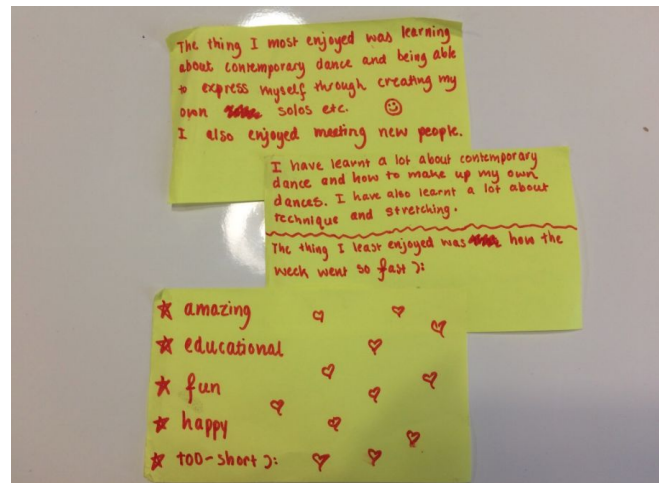 The thing I most enjoyed was learning
about contemporary dance and being able
to express myself through creating my
own solos etc. ☺
I also enjoyed meeting new people.
I have learnt a lot about contemporary
dance and how to make up my own
dances. I have also learnt a lot about
technique and stretching.
The thing I least enjoyed was how the
week went so fast ):
☆ amazing
☆ educational
☆ fun
☆ happy
☆ too-short ):